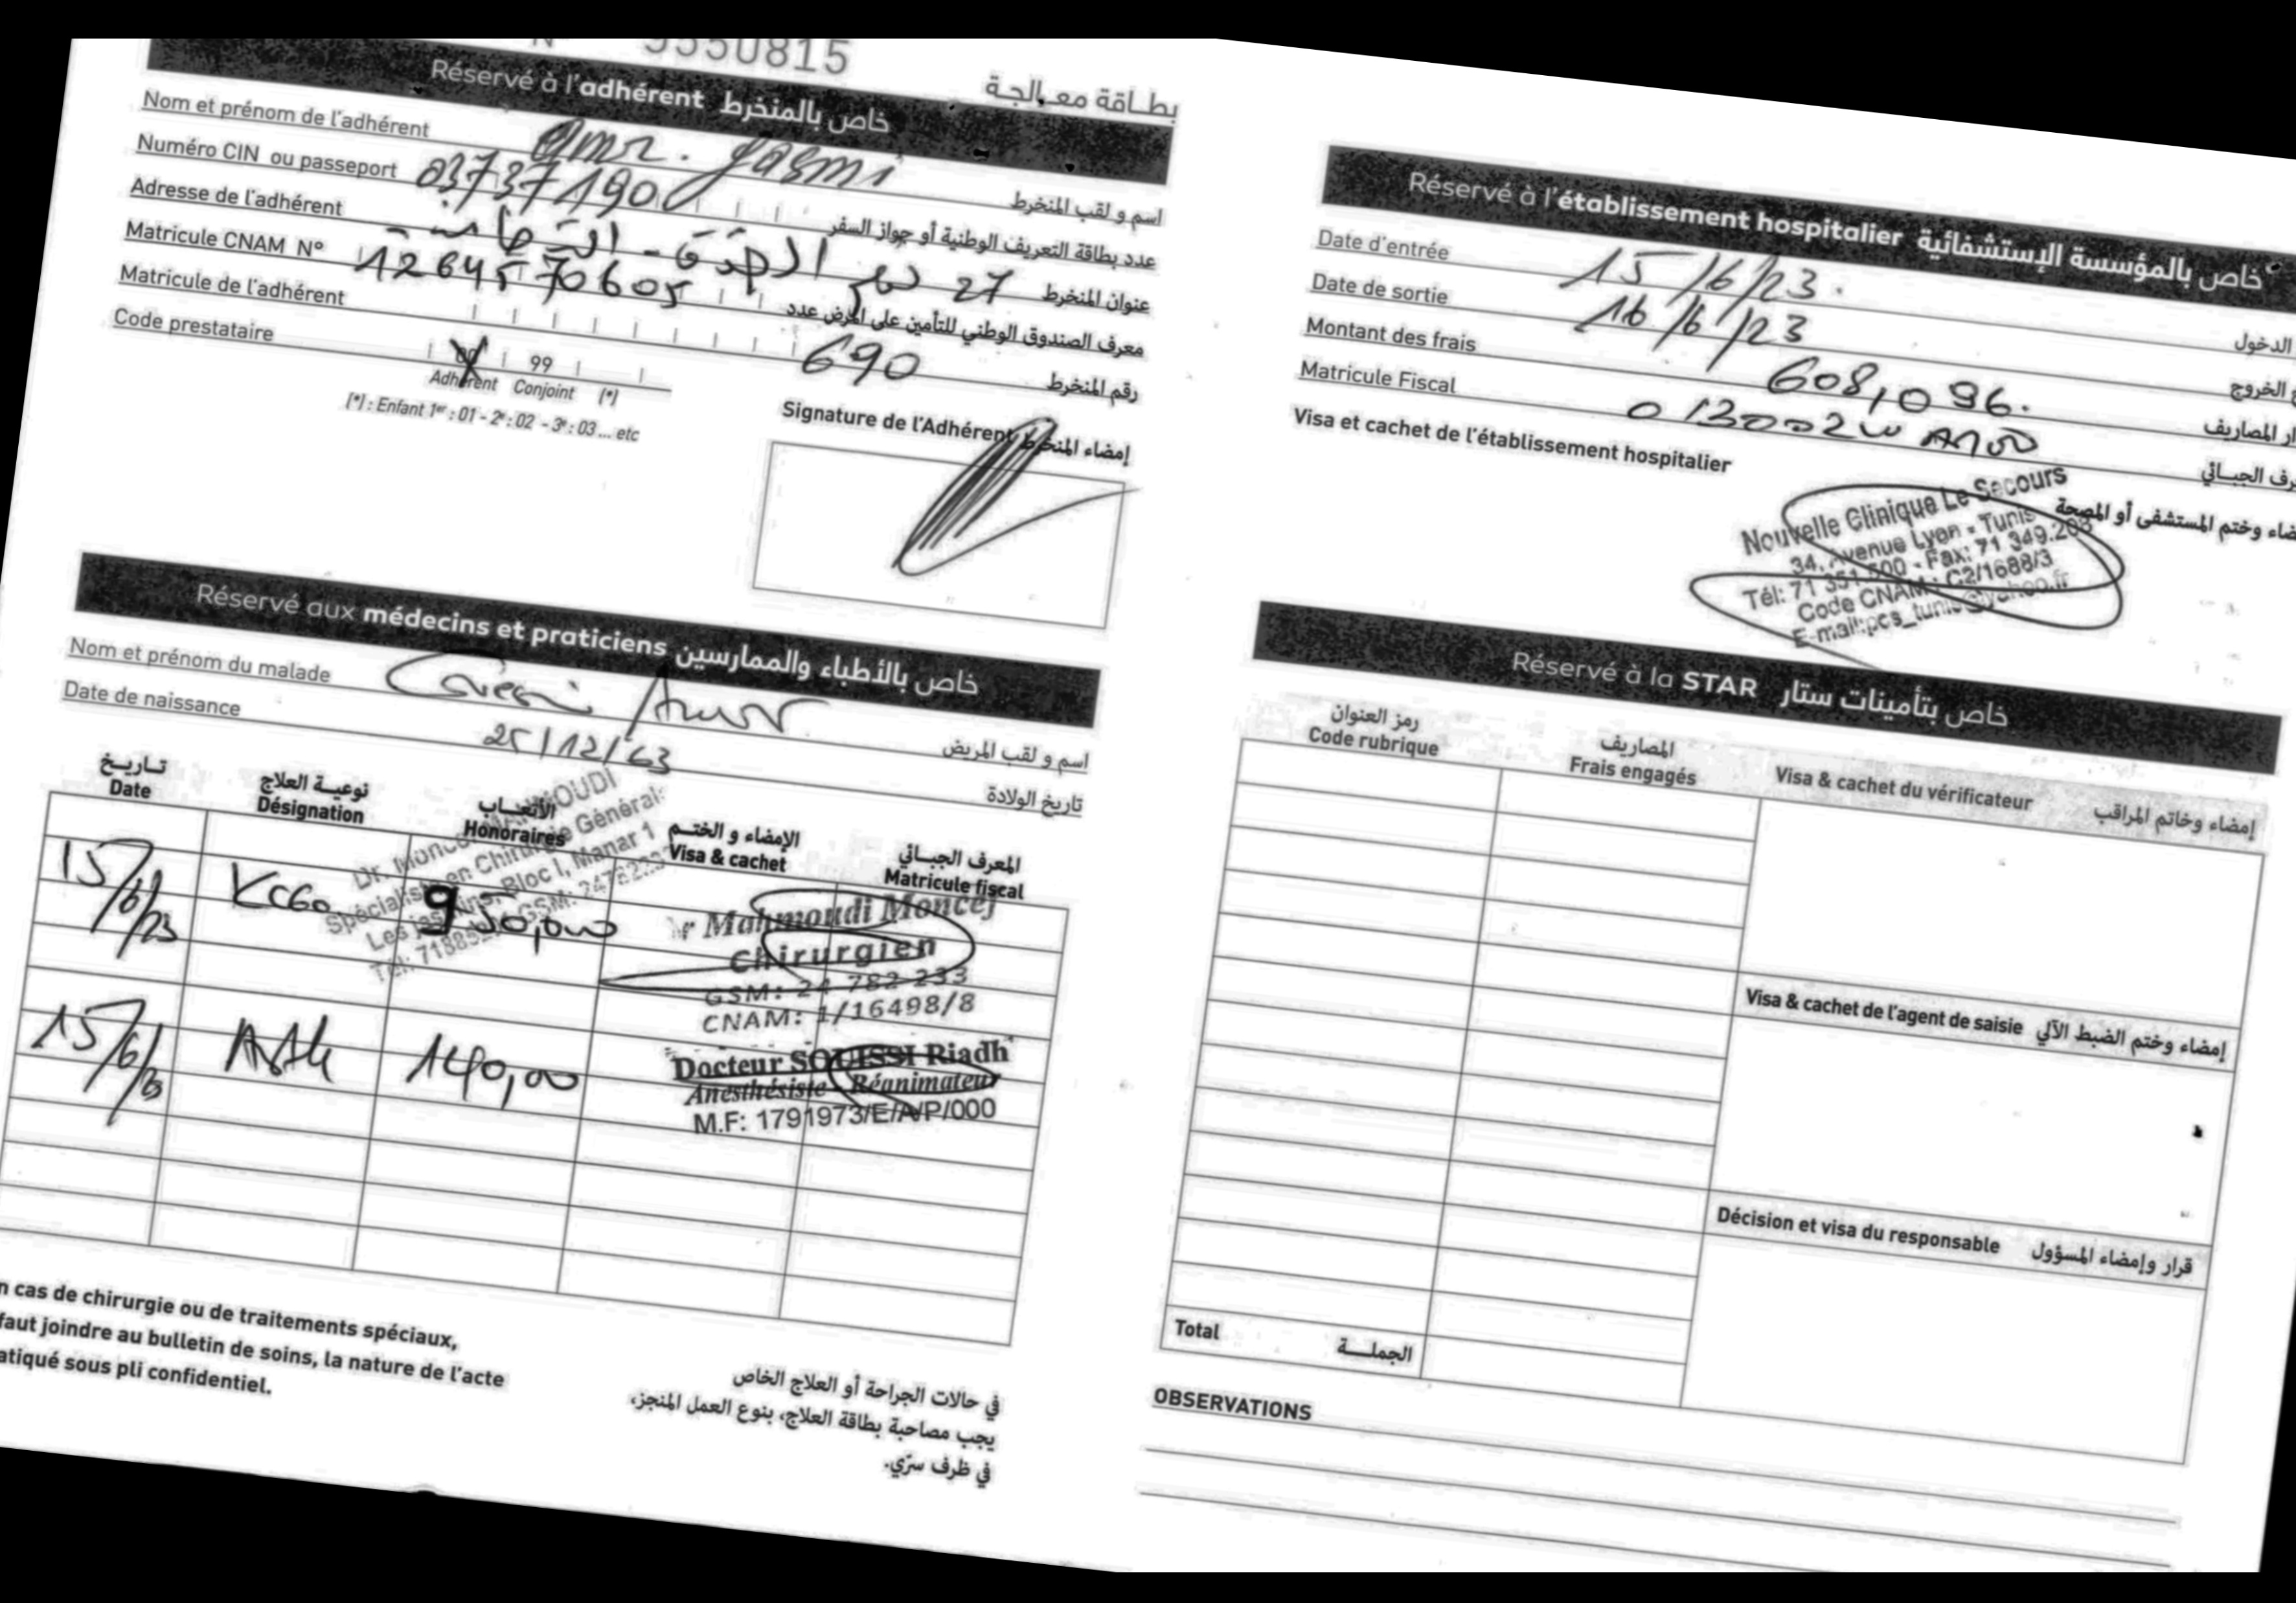 بطـاقة معـالجـة
Réservé à l'adhérent خاص بالمنخرط
Nom et prénom de l'adhérent اسم و لقب المنخرط
Numéro CIN ou passeport 03737190 عدد بطاقة التعريف الوطنية أو جواز السفر
Adresse de l'adhérent 27 نهج عنوان المنخرط
Matricule CNAM N° 1264570605 معرف الصندوق الوطني للتأمين على المرض عدد
Matricule de l'adhérent 690 رقم المنخرط
Code prestataire 99
Adhérent Conjoint (*)
(*) : Enfant 1er : 01 - 2e : 02 - 3e : 03 ... etc
Signature de l'Adhérent إمضاء المنخرط
Réservé aux médecins et praticiens خاص بالأطباء والممارسين
Nom et prénom du malade اسم و لقب المريض
Date de naissance 25/12/63 تاريخ الولادة
تـاريـخ نوعيـة العلاج الأتعـاب الإمضاء و الختـم المعرف الجبـائي
Date Désignation Honoraires Visa & cachet Matricule fiscal
Spécialiste en Chirurgie Générale
Bloc I, Manar 1
15/6/23 KC60 950,000
Mahmoudi Moncef
Chirurgien
GSM: 24 782 233
CNAM: 1/16498/8
15/6/23 140,00
Docteur SOUISSI Riadh
Anesthésiste Réanimateur
M.F: 1791973/E/A/P/000
n cas de chirurgie ou de traitements spéciaux,
faut joindre au bulletin de soins, la nature de l'acte
atiqué sous pli confidentiel.
في حالات الجراحة أو العلاج الخاص
يجب مصاحبة بطاقة العلاج، بنوع العمل المنجز،
في ظرف سرّي.
Réservé à l'établissement hospitalier خاص بالمؤسسة الإستشفائية
Date d'entrée 15/6/23 الدخول
Date de sortie 16/6/23 الخروج
Montant des frais 608,096 المصاريف
Matricule Fiscal الجبـائي
Visa et cachet de l'établissement hospitalier وختم المستشفى أو المصحة
Nouvelle Clinique Le Secours
34, Avenue Lyon - Tunis
Tél: 71 351 500 - Fax: 71 349.208
Code CNAM : C2/1688/3
E-mail:pcs_tunis@yahoo.fr
Réservé à la STAR خاص بتأمينات ستار
رمز العنوان المصاريف
Code rubrique Frais engagés Visa & cachet du vérificateur إمضاء وخاتم المراقب
Visa & cachet de l'agent de saisie إمضاء وختم الضبط الآلي
Décision et visa du responsable قرار وإمضاء المسؤول
Total الجملـــة
OBSERVATIONS